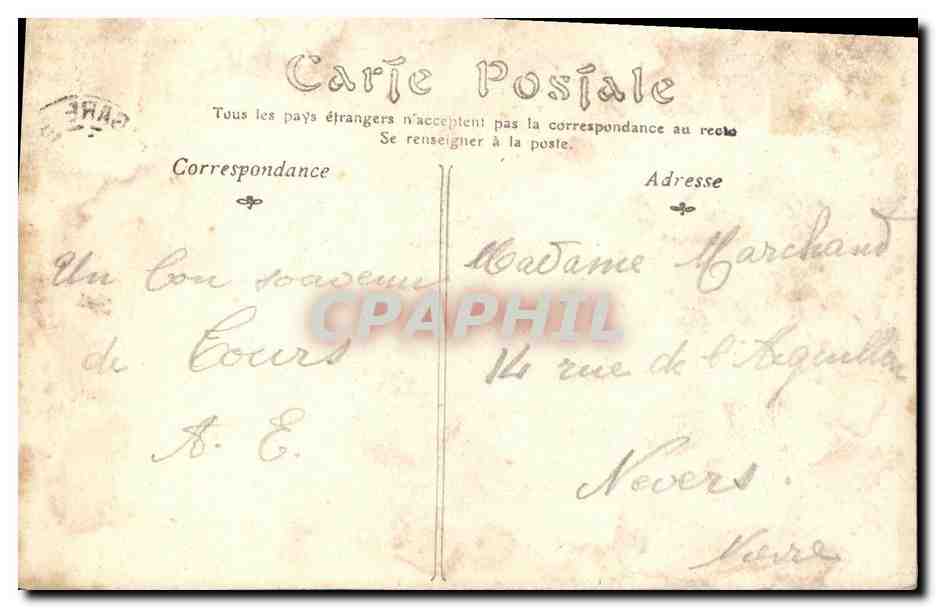 Carte Postale
Tous les pays étrangers n'acceptent pas la correspondance au recto
Se renseigner à la poste.
Correspondance
Un bon souvenir
de Tours
A. E.
Adresse
Madame Marchand
14 rue de l'Aiguillon
Nevers.
Nièvre
GARE
CPAPHIL